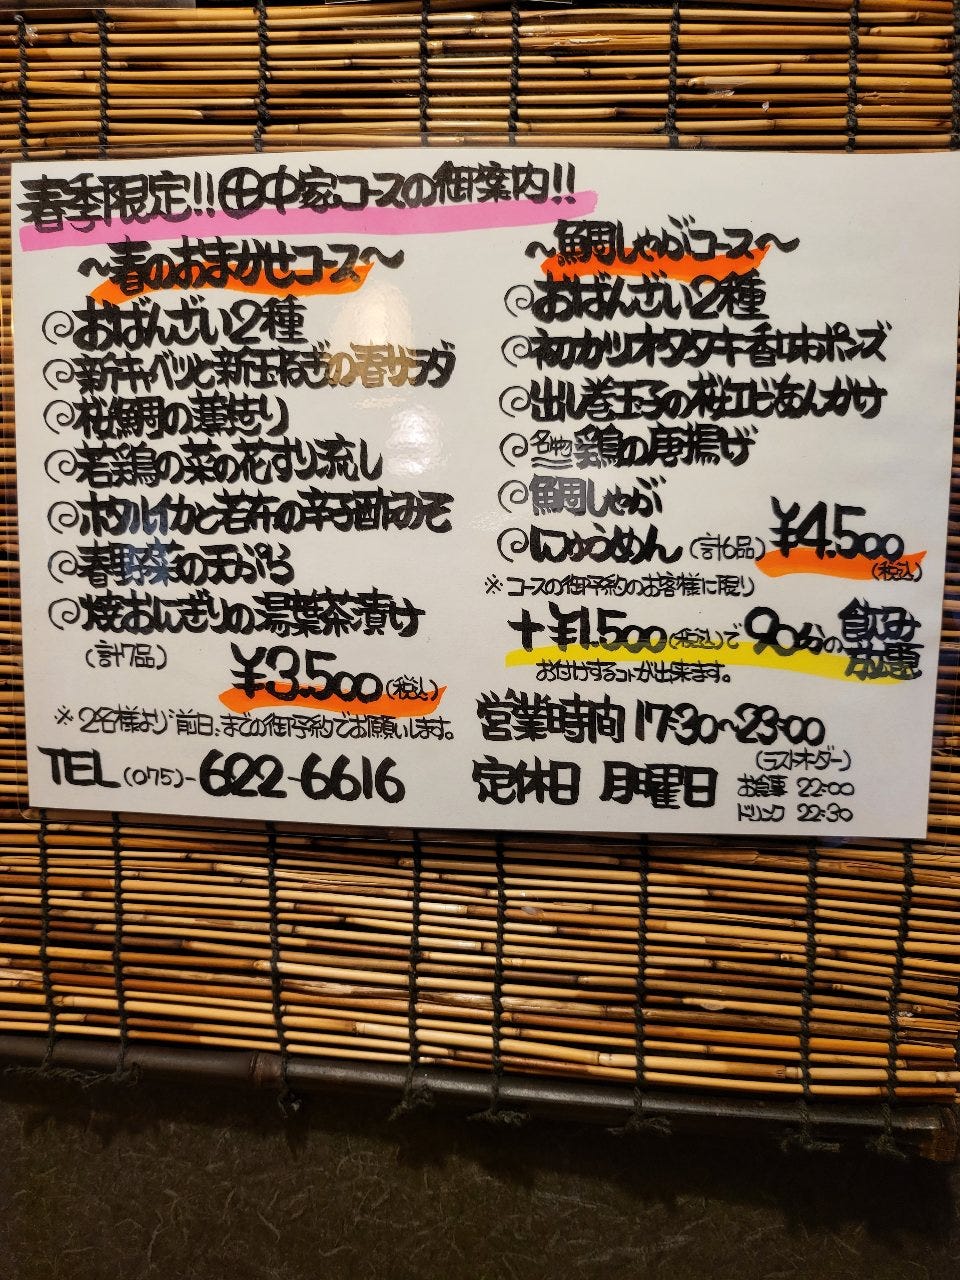 春季限定!!田中家コースの御案内!!
～春のおまかせコース～
おばんざい2種
新キャベツと新玉ねぎの春サラダ
桜鯛の蓮蒸し
若鶏の菜の花すり流し
ホタルイカと若布の辛子酢みそ
春野菜の天ぷら
焼おにぎりの湯葉茶漬け
(計7品)
¥3.500(税込)
※2名様より前日までの御予約でお願いします。
TEL(075)-622-6616
～鯛しゃぶコース～
おばんざい2種
初ガツオタタキ香味おポンズ
出し巻玉子の桜エビあんかけ
名物鶏の唐揚げ
鯛しゃぶ
にゅうめん(計6品)¥4.500
(税込)
※コースの御予約のお客様に限り
+¥1.500(税込)で90分の飲み放題
お付けするコトが出来ます。
営業時間17:30～23:00
(ラストオーダー)
定休日 月曜日
お食事 22:00
ドリンク 22:30